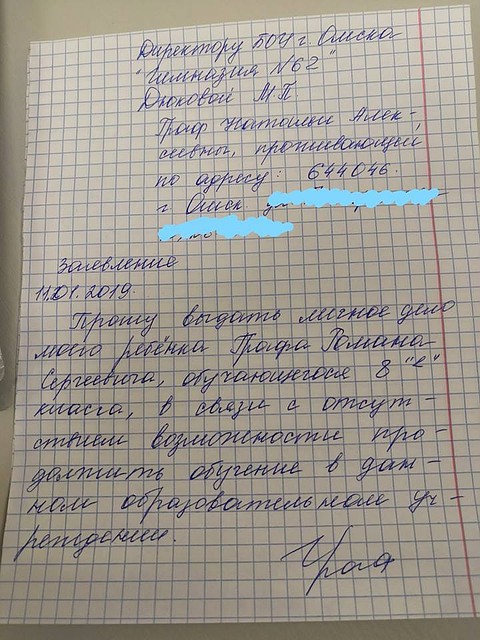 Директору БОУ г. Омска
"Гимназия №62"
Дюковой М П
Граф Натальи Алек-
сеевны, проживающей
по адресу: 644046.
г Омск.
Заявление
11.01.2019.
Прошу выдать личное дело
моего ребёнка Графа Романа
Сергеевича, обучающегося 8 "Е"
класса, в связи с отсут-
ствием возможности про-
должить обучение в дан-
ном образовательном уч-
реждении.
Граф